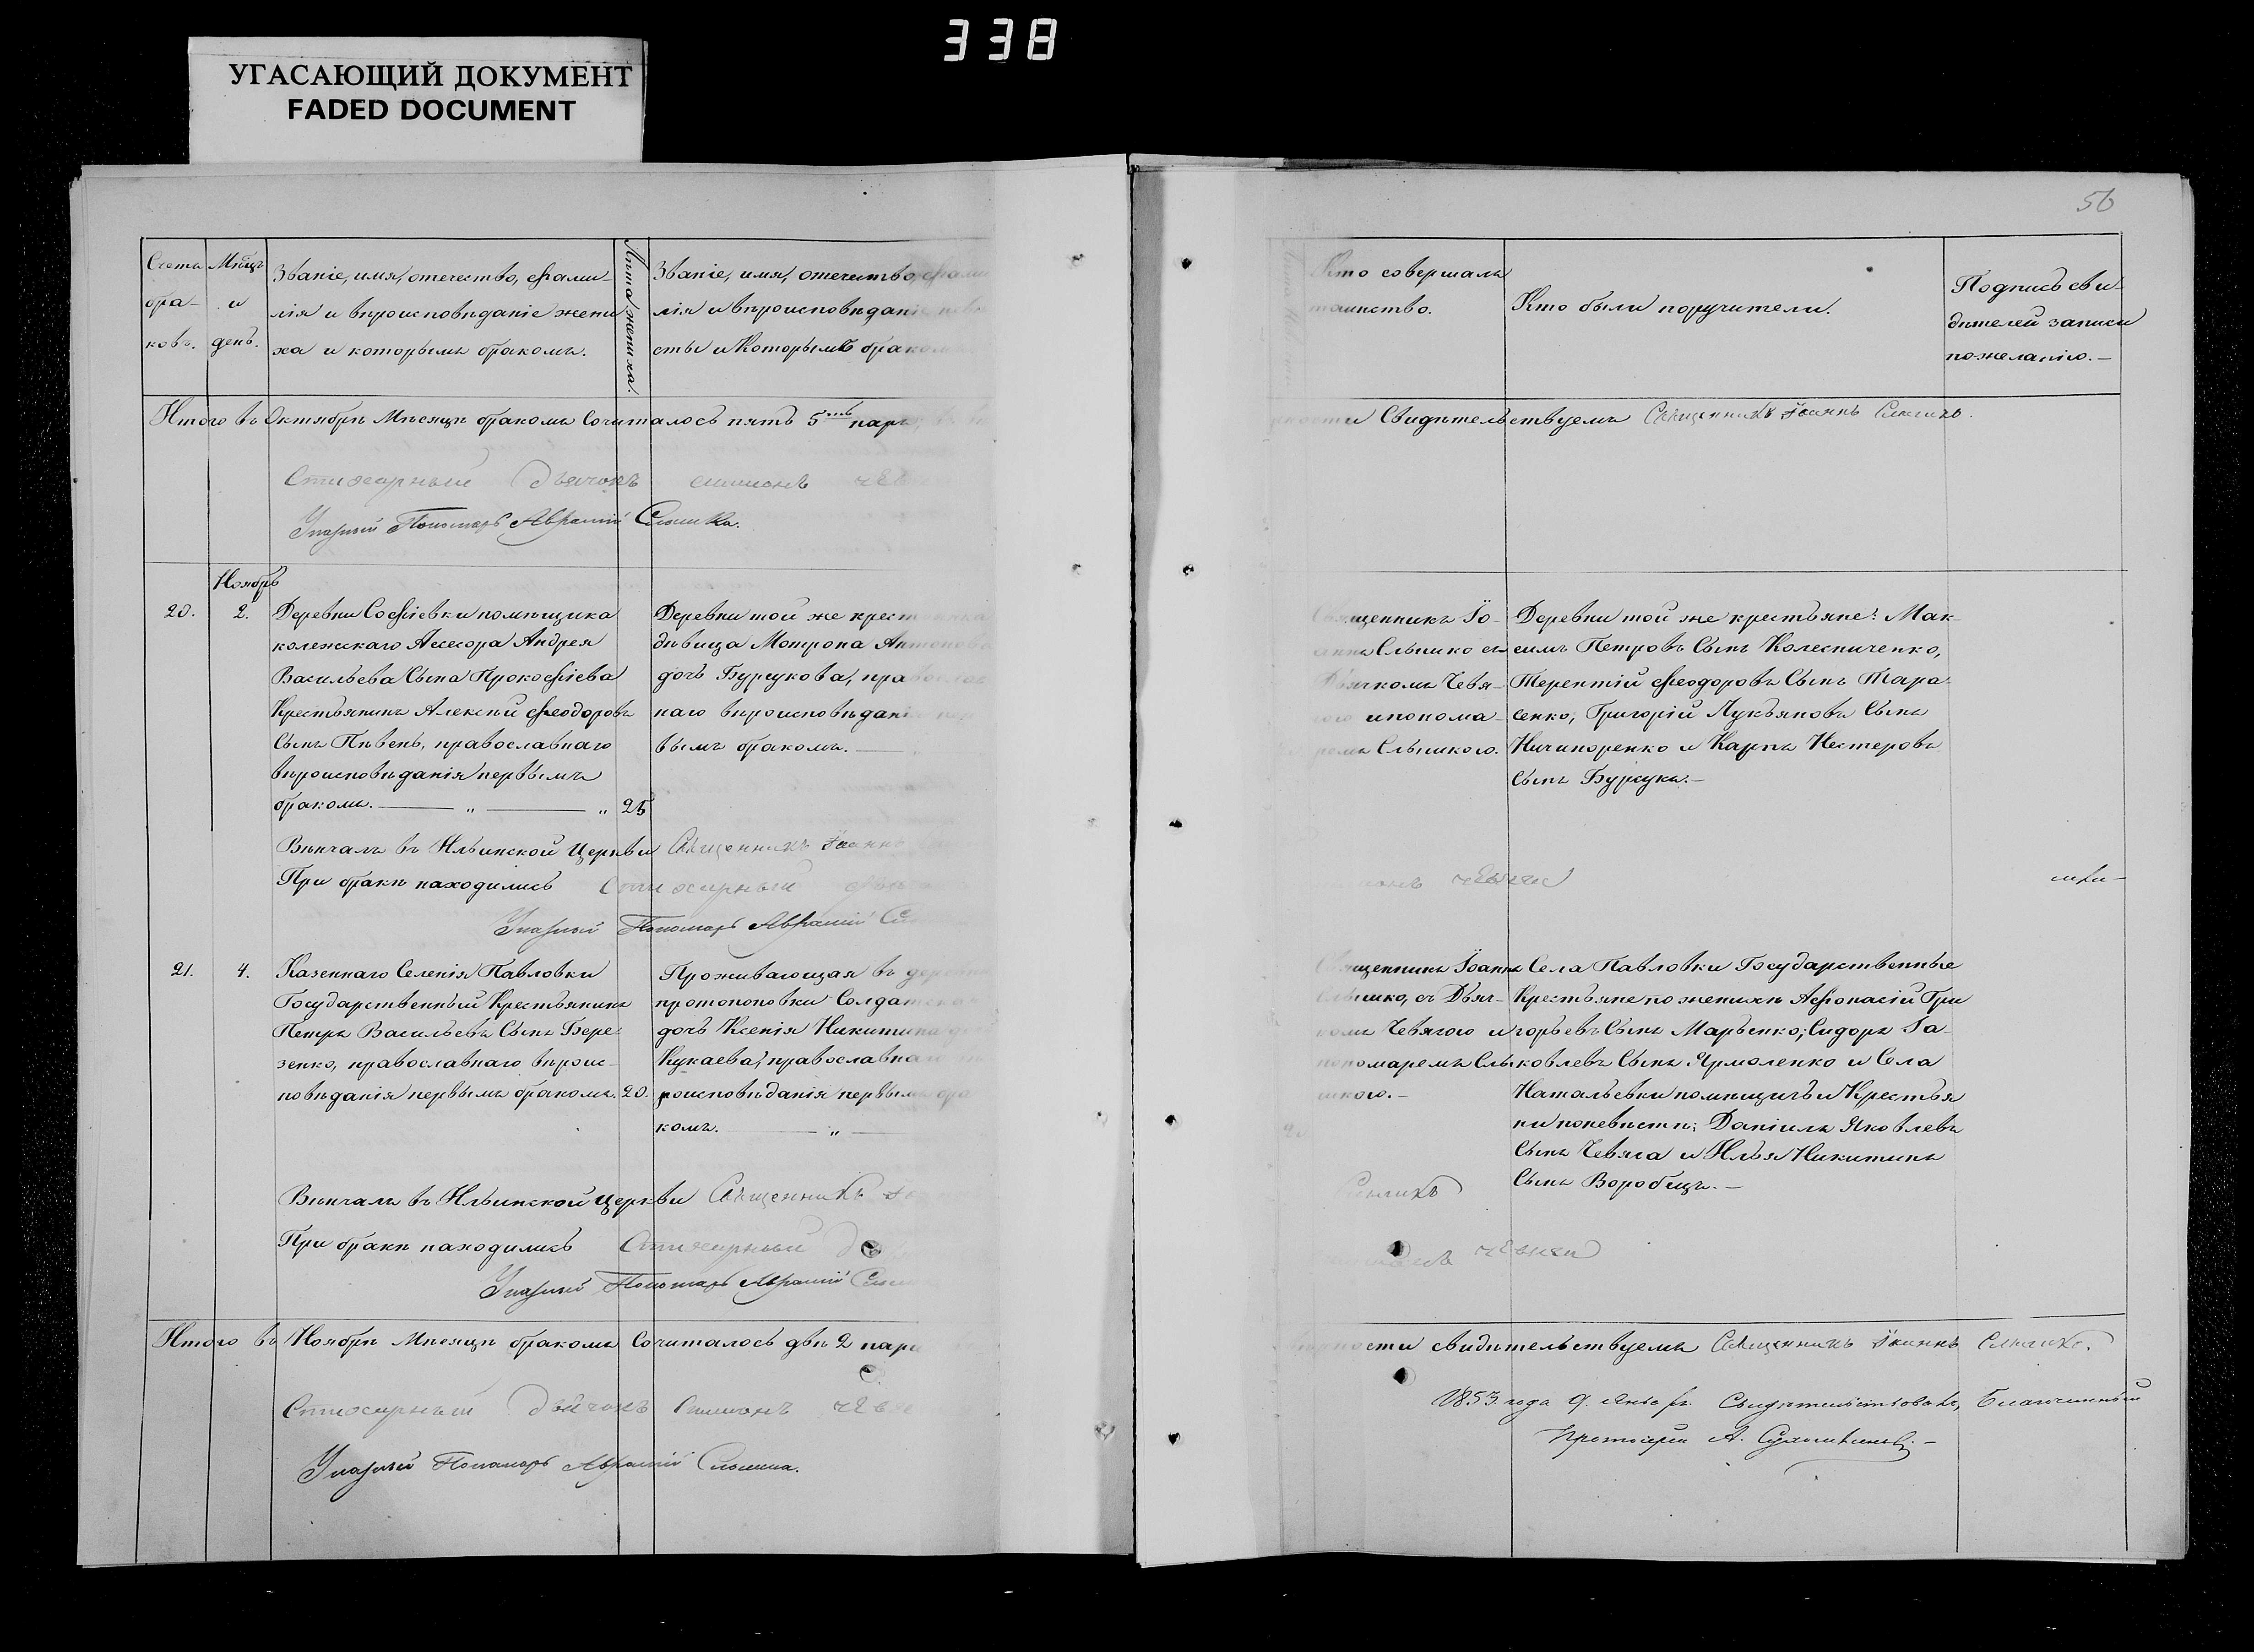 338
УГАСАЮЩИЙ ДОКУМЕНТ
FADED DOCUMENT
56
Счетъ бра-ковъ.
Мѣцъ и день.
Званіе, имя, отечество, фами-
лія и вѣроисповѣданіе жени
ха и которымъ бракомъ.
Лѣта жениха.
Званіе, имя, отечество, фами
лія и вѣроисповѣданіе невѣ
сты и Которымъ бракомъ
Кто совершалъ
таинство.
Кто были поручители.
Подпись сви-
дѣтелей записи
по желанію.—
Итого въ Октябрѣ Мѣсяцѣ бракомъ Сочиталось пять 5ть паръ,
Свидѣтельствуемъ Священникъ Іоаннъ
Стихарный Дьячокъ
Указный Пономарь Аврамій
Ноябрь
20. 2.
Деревни Софіевки помѣщика
колежскаго Ассесора Андрея
Васильева Сына Прокофіева
Крестьянинъ Алексѣй Феодоровъ
Сынъ Пѣвень, православнаго
вѣроисповѣданія первымъ
бракомъ. — „ — „ 25
Деревни той же крест
дѣвица Мотрона Антонова
дочь Бурсукова, православ
наго вѣроисповѣданія пер
вымъ бракомъ. —
Священникъ Іо-
аннъ Слышко съ
Дьячкомъ Чевя-
гою и понома-
ремъ Слышкою.
Деревни той же крестьяне: Мак-
симъ Петровъ Сынъ Колесниченко,
Терентій Феодоровъ Сынъ Тара-
сенко, Григорій Лукьяновъ Сынъ
Ничипоренко и Карпъ Нестеровъ
Сынъ Бурсукъ.—
Вѣнчалъ въ Ильинской Церкви Священникъ Іоаннъ
При бракѣ находились Стихарный
Указный Пономарь Аврамій
21. 4.
Казеннаго Селенія Павловки
Государственный Крестьянинъ
Петръ Васильевъ Сынъ Бере-
зенко, православнаго вѣроис-
повѣданія первымъ бракомъ. 20.
Проживающая въ деревнѣ
протопоповки Солдатская
дочь Ксенія Никитина
Кукаева, православнаго
роисповѣданія первымъ бра
комъ. — „ —
Священникъ Іоаннъ
Слышко, съ Дьяч-
комъ Чевягою и
пономаремъ Слы
шкою.—
Села Павловки Государственные
Крестьяне по женихѣ Афонасій Гри
горьевъ Сынъ Марьенко; Сидоръ Іа-
ковлевъ Сынъ Ярмоленко и Села
Натальевки помѣщичьи Крестья
не по невѣстѣ: Даніилъ Яковлевъ
Сынъ Чевяга и Илья Никитинъ
Сынъ Воробецъ.—
Вѣнчалъ въ Ильинской Церкви Священникъ
При бракѣ находились Стихарный
Указный Пономарь Аврамій
Итого въ Ноябрѣ Мѣсяцѣ бракомъ Сочиталось двѣ 2 пары
свидѣтельствуемъ Священникъ Іоаннъ
Стихарный Дьячокъ
Указный Пономарь Аврамій
1853 года 9. Января. Свидѣтельствовалъ, Благочинный
Протоіерей А.